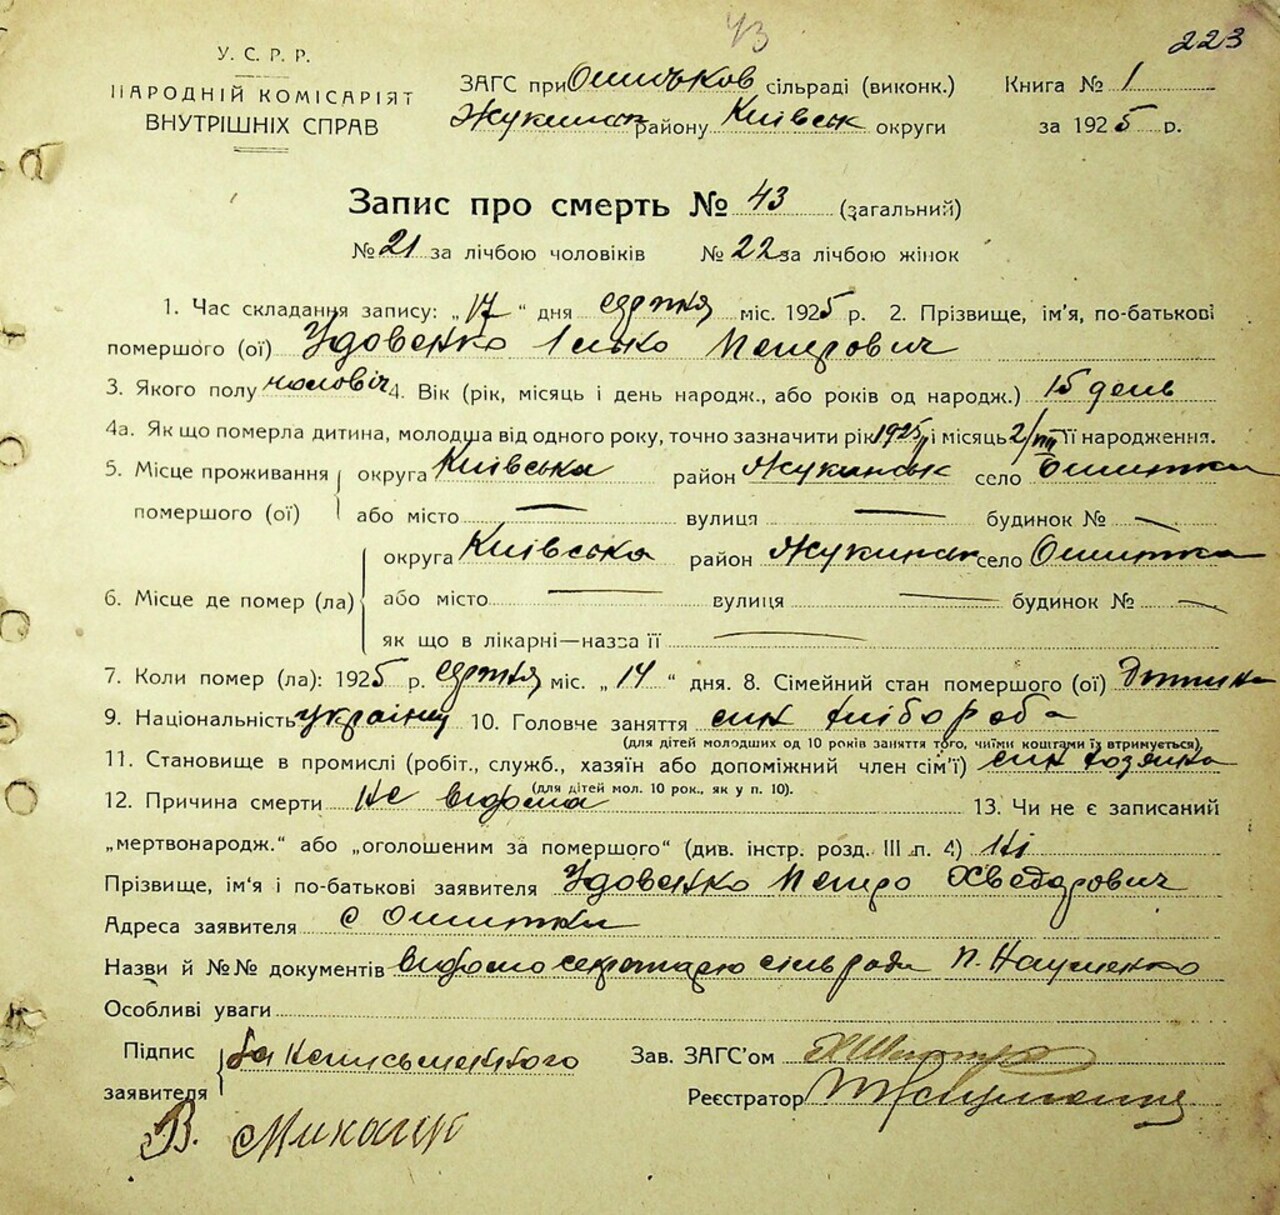 43
223
У. С. Р. Р.
НАРОДНІЙ КОМІСАРІЯТ
ВНУТРІШНІХ СПРАВ
ЗАГС при Ошитьков сільраді (виконк.)
Жукинськ району Київськ округи
Книга № 1
за 1925 р.
Запис про смерть № 43 (загальний)
№ 21 за лічбою чоловіків № 22 за лічбою жінок
1. Час складання запису: „17“ дня серпня міс. 1925 р. 2. Прізвище, ім'я, по-батькові
помершого (ої) Удовенко Петрович
3. Якого полу чоловіч 4. Вік (рік, місяць і день народж., або років од народж.) 15 день
4а. Як що померла дитина, молодша від одного року, точно зазначити рік 1925 і місяць 2/VIII її народження.
5. Місце проживання округа Київська район Жукинськ село Ошитки
помершого (ої) або місто — вулиця — будинок № —
округа Київська район Жукинськ село Ошитки
6. Місце де помер (ла) або місто — вулиця — будинок № —
як що в лікарні—назва її —
7. Коли помер (ла): 1925 р. серпня міс. „14“ дня. 8. Сімейний стан помершого (ої) Дитина
9. Національність українц 10. Головне заняття син хлібороба
(для дітей молодших од 10 років заняття того, чиїми коштами їх втримується).
11. Становище в промислі (робіт., служб., хазяїн або допоміжний член сім'ї) син хозяина
(для дітей мол. 10 рок., як у п. 10).
12. Причина смерти Не відома 13. Чи не є записаний
„мертвонародж.“ або „оголошеним за помершого“ (див. інстр. розд. III п. 4) Ні
Прізвище, ім'я і по-батькові заявителя Удовенко Петро Хведорович
Адреса заявителя с Ошитки
Назви й №№ документів відомо секретарю сільради П. Науменко
Особливі уваги
Підпис за неписьменного Зав. ЗАГС'ом
заявителя Реєстратор
В.